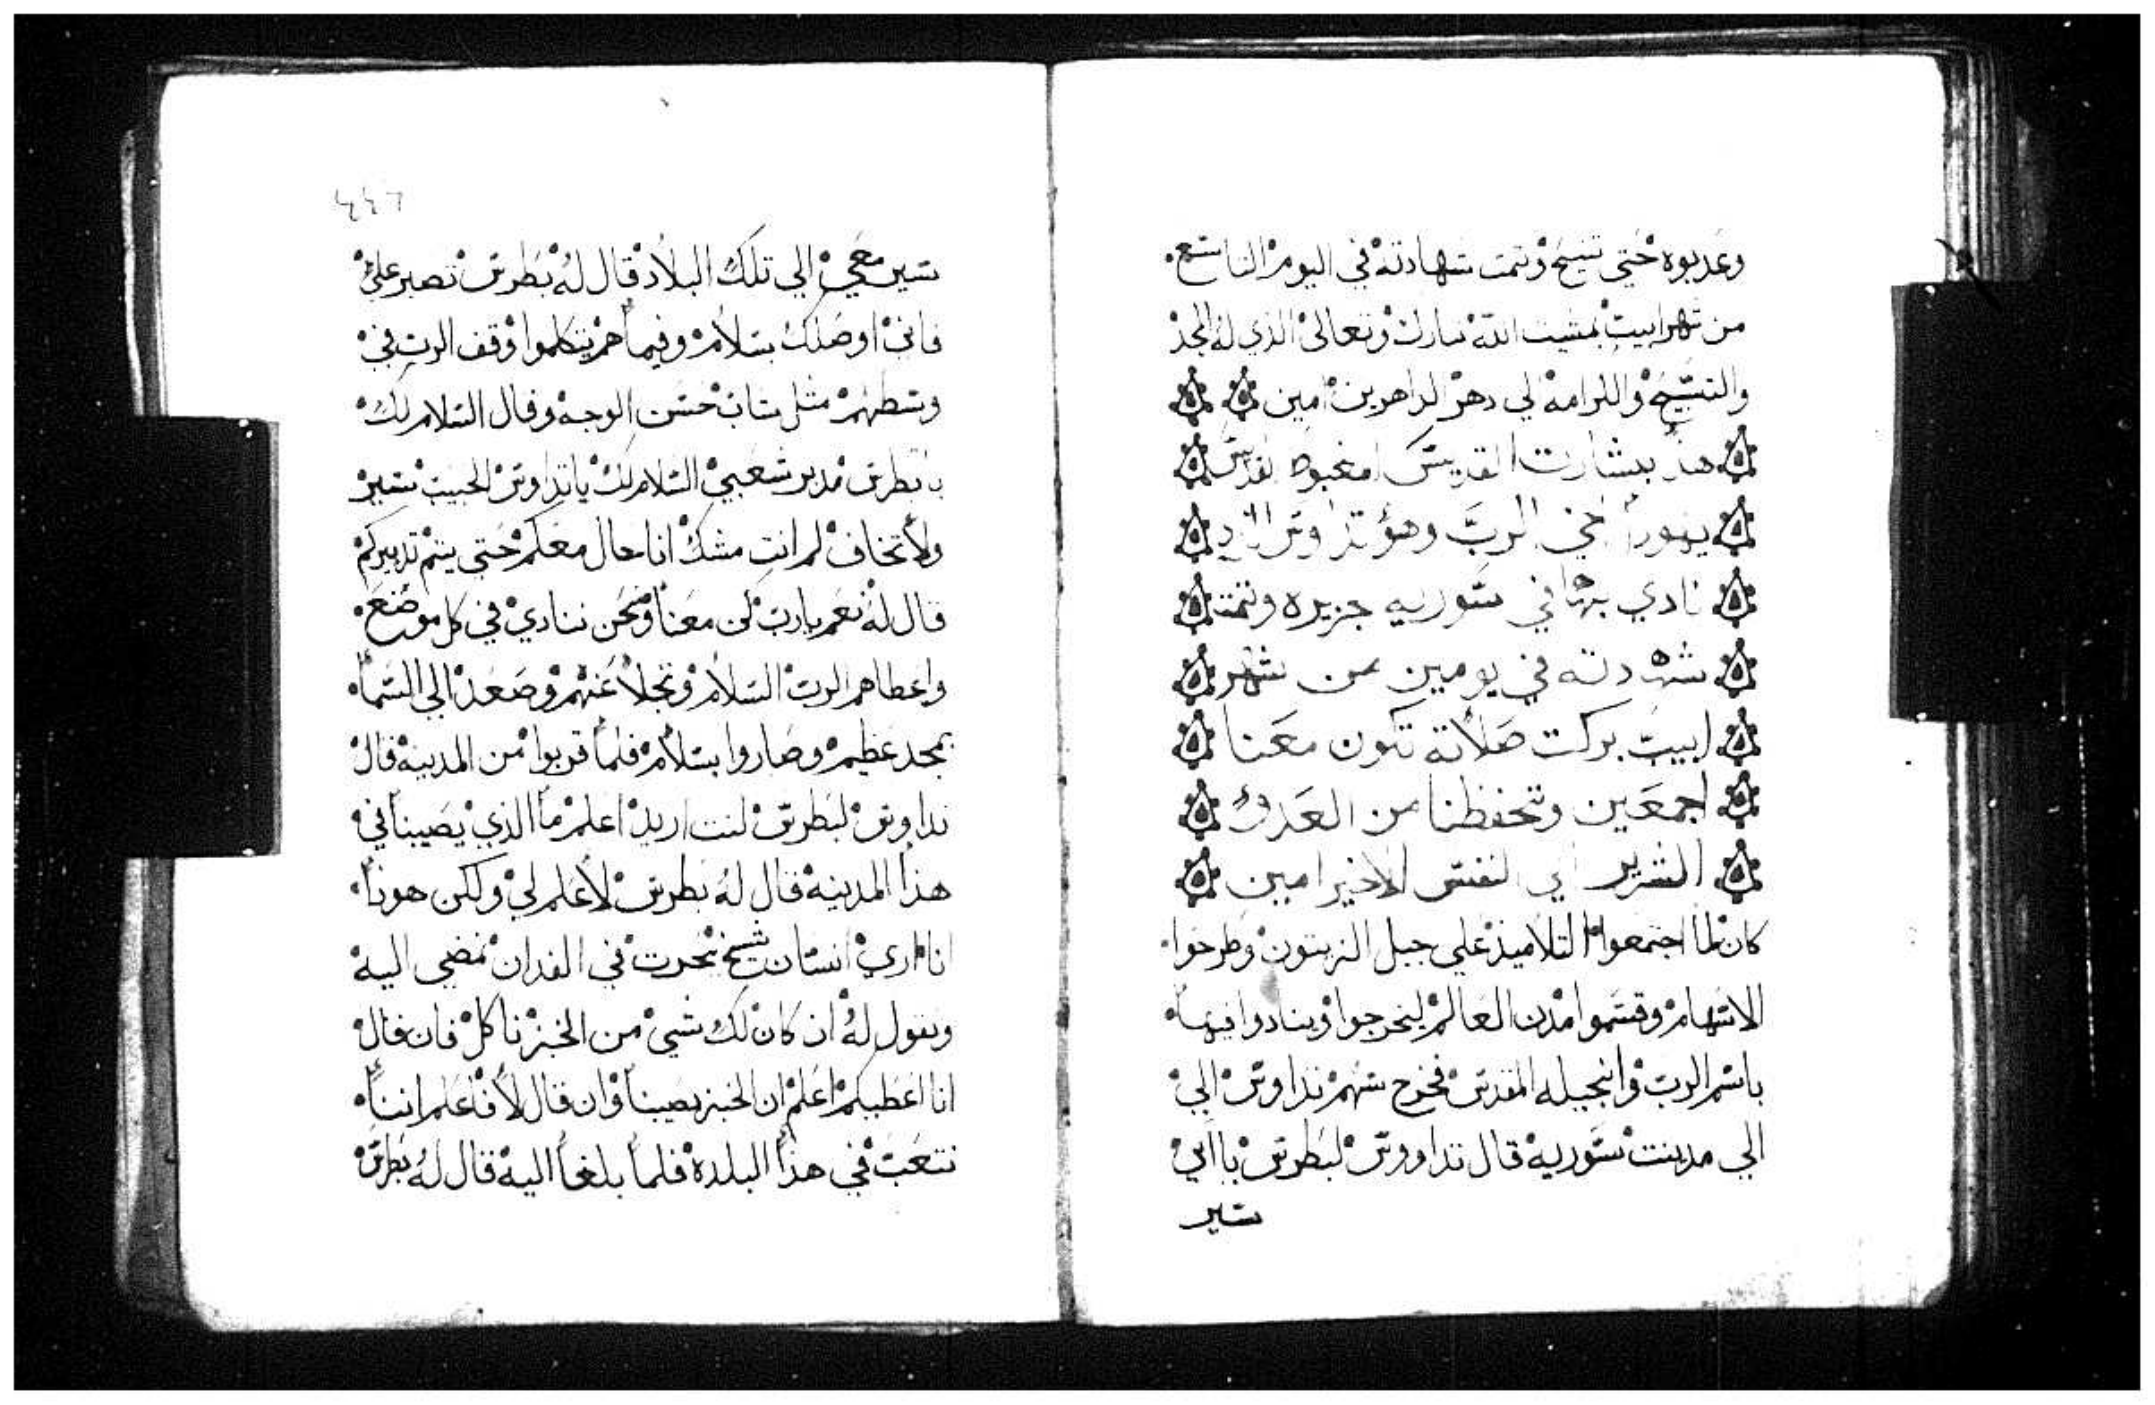 وعدبوه حتي تنيح وتمت شهادته في اليوم التاسع
من شهر ابيب بمشيت الله تبارك وتعالي الذي له المجد
والتسبيح والكرامه الي دهر الداهرين امين
هذه بشارت القديس المغبوط القديس
يهودا اخي الرب وهو تداوس الذي
نادي بها في سوريه جزيره وتمت
شهادته في يومين من شهر
ابيب بركت صلاته تكون معنا
اجمعين وتحفظنا من العدو
الشرير الي النفس الاخير امين
كان لما اجتمعوا التلاميذ علي جبل الزيتون وطرحوا
الاسهام وقسموا مدن العالم ليخرجوا وينادوا فيها
باسم الرب وانجيله المقدس فخرج سهم تداوس الي
الي مدينت سوريه قال تداووس لبطرس يا ابي
سير
٤٤٦
سير معي الي تلك البلاد قال له بطرس تصبر علي
فاني اوصلك بسلام وفيما هم يتكلموا وقف الرب في
وسطهم مثل شاب حسن الوجه وقال السلام لك
يا بطرس مدبر شعبي السلام لك يا تداوس الحبيب سير
ولا تخاف لم انت مشك انا حال معكم حتي يتم تدبيركم
قال له نعم يا رب كن معنا ونحن ننادي في كل موضع
واعطاهم الرب السلام وتجلا عنهم وصعد الي السما
بمجد عظيم وصاروا بسلام فلما قربوا من المدينه قال
تداوس لبطرس لنت اريد اعلم ما الذي يصيبنا في
هذا المدينه قال له بطرس لا علم لي ولكن هوذا
انا اري انسان شيخ يحرت في الفدان نمضي اليه
ونقول له ان كان لك شي من الخبز ناكل فان قال
انا اعطيكم اعلم ان الخبز يصيبنا وان قال لا فاعلم اننا
نتعب في هذا البلده فلما بلغا اليه قال له بطرس